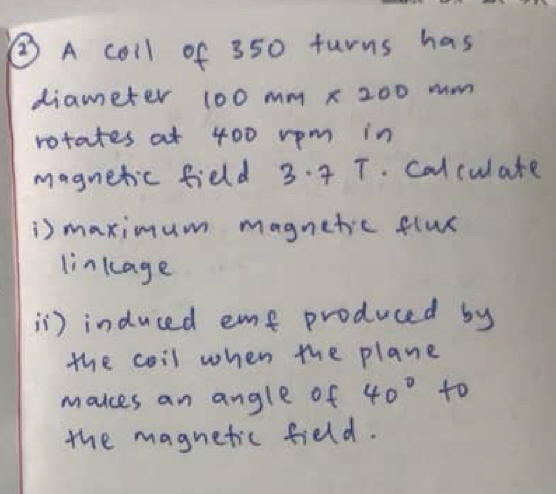 2) A coil of 350 turns has
diameter 100 mm x 200 mm
rotates at 400 rpm in
magnetic field 3.7 T. Calculate
i) maximum magnetic flux
linkage
ii) induced emf produced by
the coil when the plane
makes an angle of 40° to
the magnetic field.